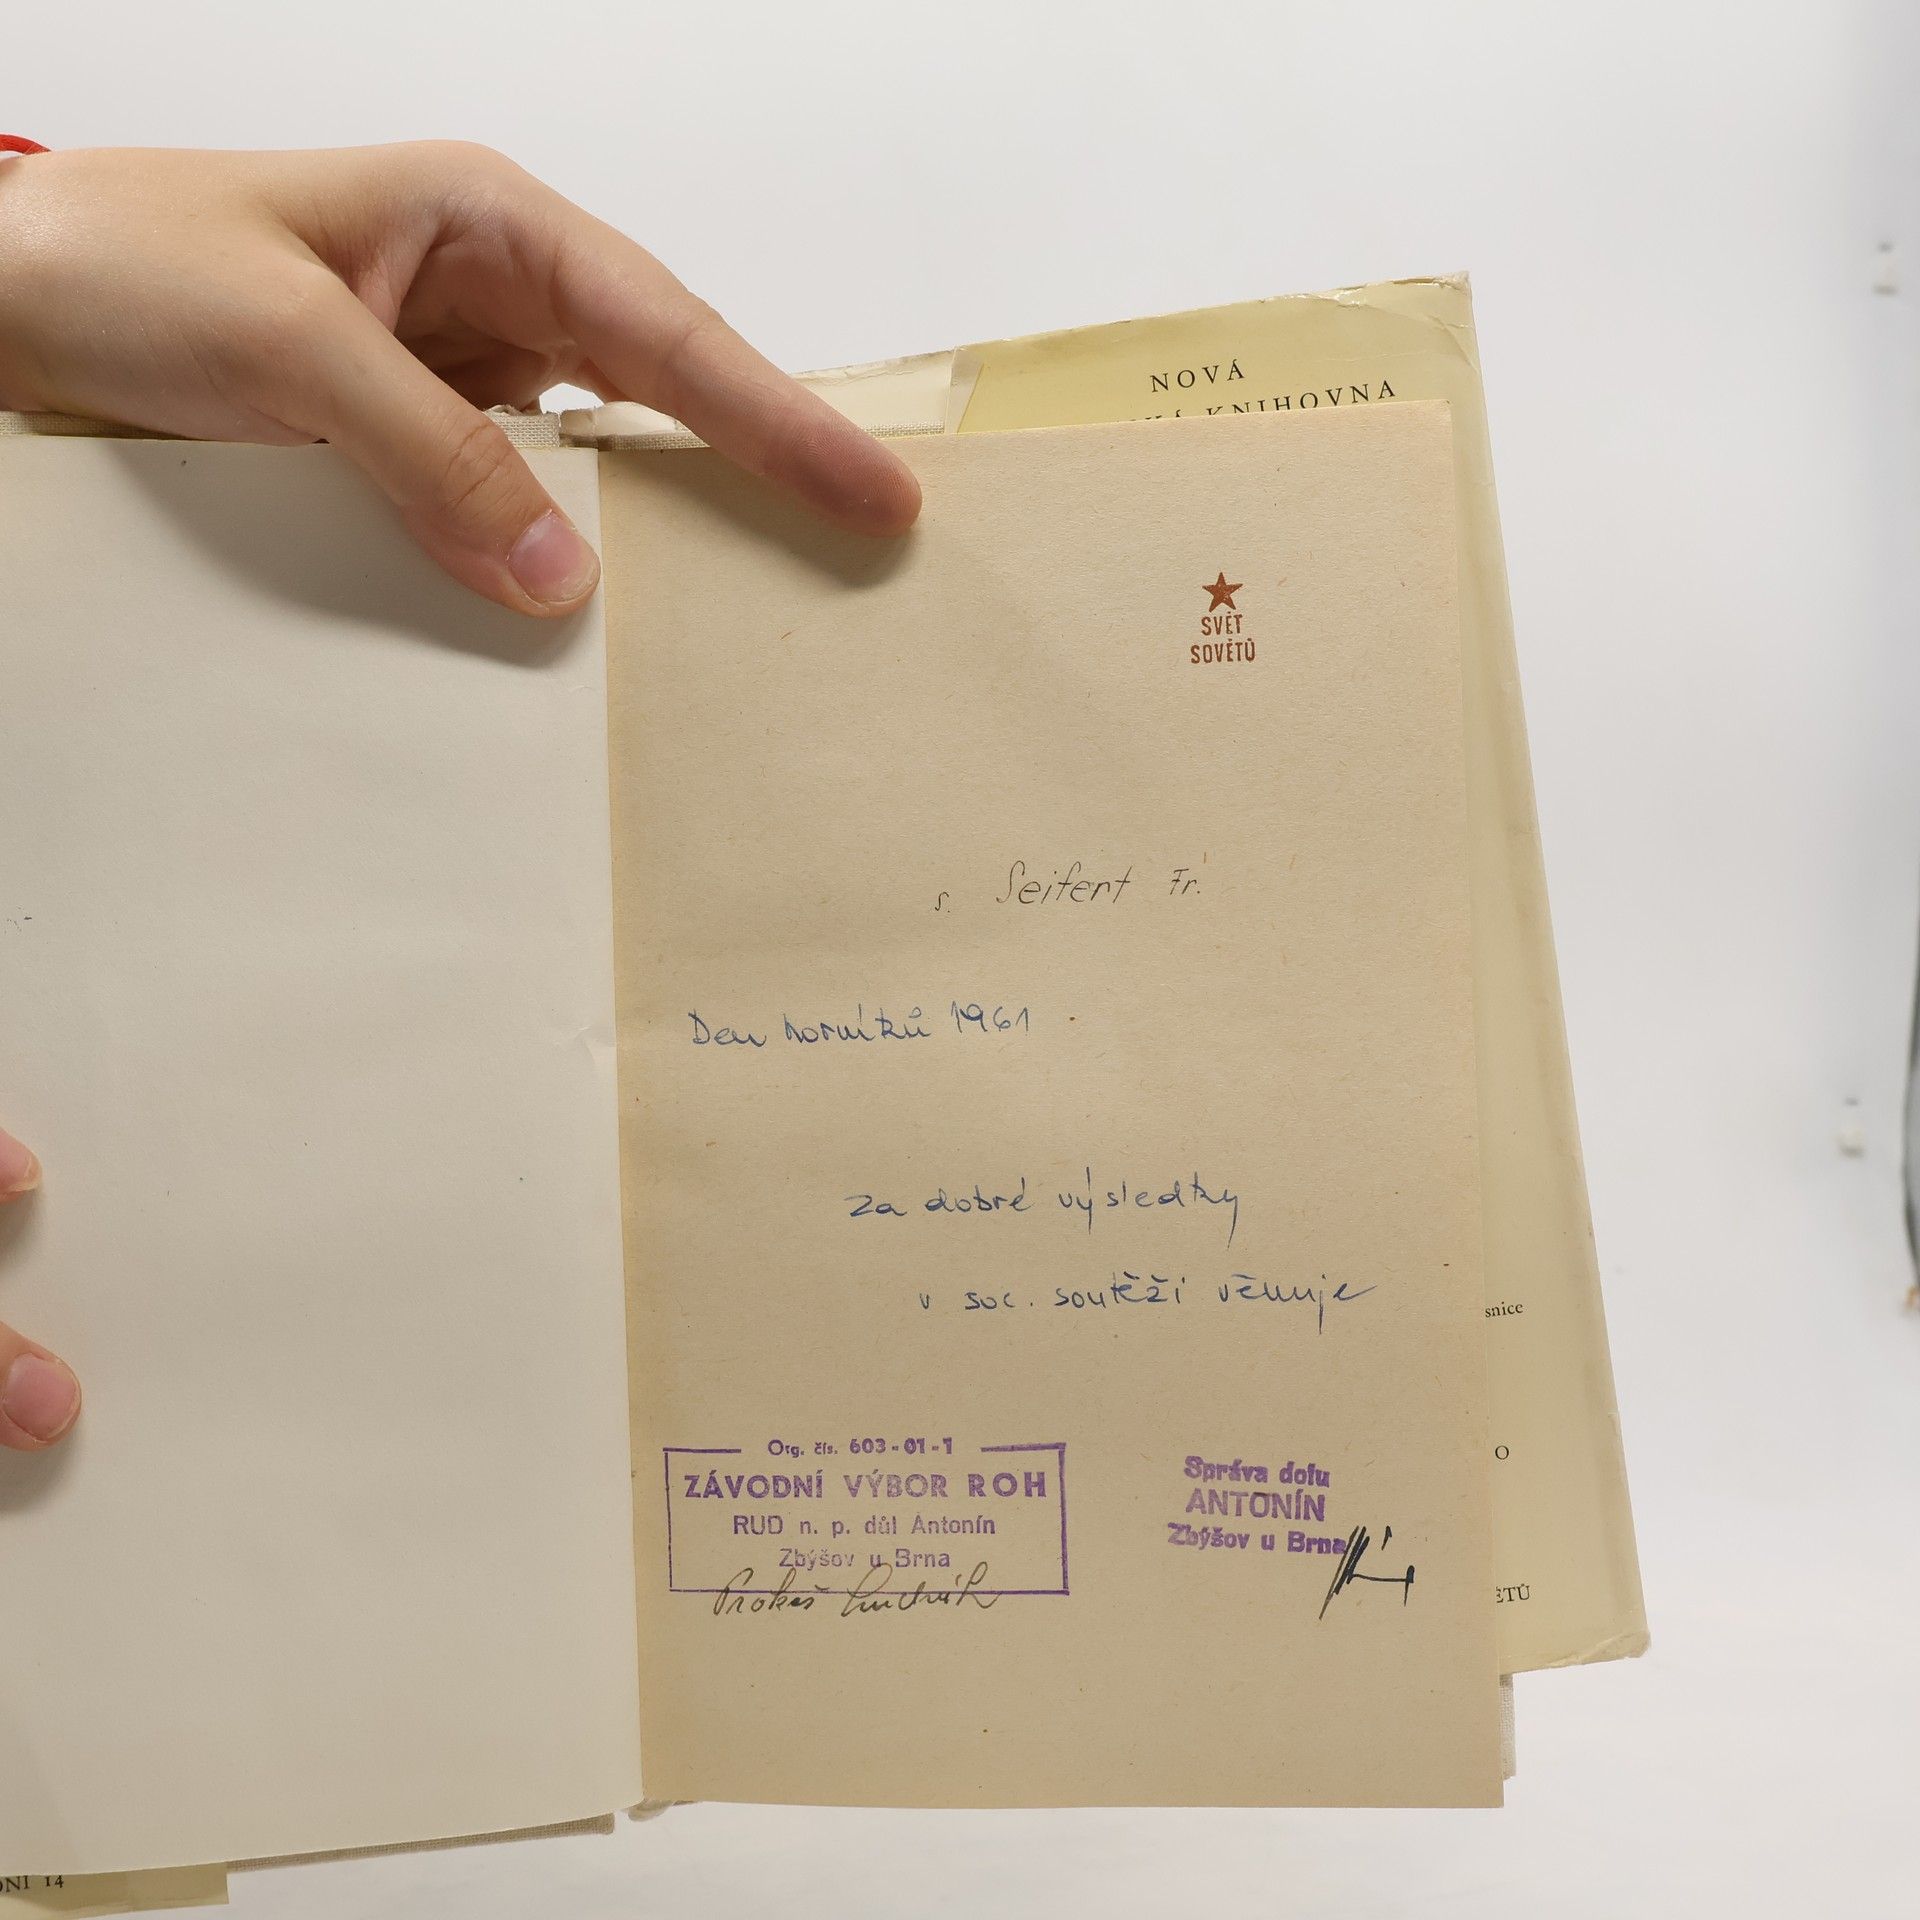 NOVÁ
KNIHOVNA
SVĚT
SOVĚTŮ
s. Seifert Fr.
Den horníků 1961
za dobré výsledky
v soc. soutěži věnuje
snice
O
ĚTŮ
Org. čís. 603-01-1
ZÁVODNÍ VÝBOR ROH
RUD n. p. důl Antonín
Zbýšov u Brna
Prokeš Ludvík
Správa dolu
ANTONÍN
Zbýšov u Brna
DNÍ 14